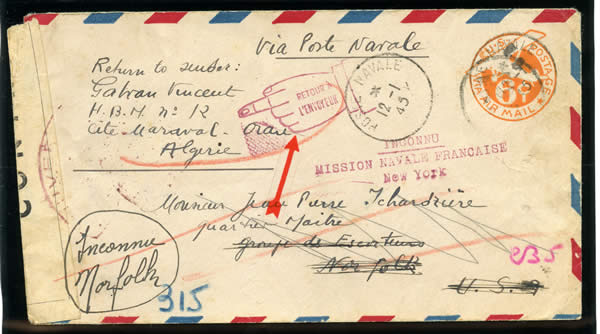 Via Poste Navale
Return to sender:
Galvan Vincent
H.B.M nº 12
Cité Maraval - Oran
Algérie
RETOUR À
L'ENVOYEUR
POSTE NAVALE
*
12-1
45
U.S. POSTAGE
6¢
VIA AIR MAIL
INCONNU
MISSION NAVALE FRANCAISE
New York
Monsieur Jean Pierre Tchardrière
quartier Maître
groupe de Escorteurs
Norfolk
U.S.A
Inconnu
Norfolk
315
235